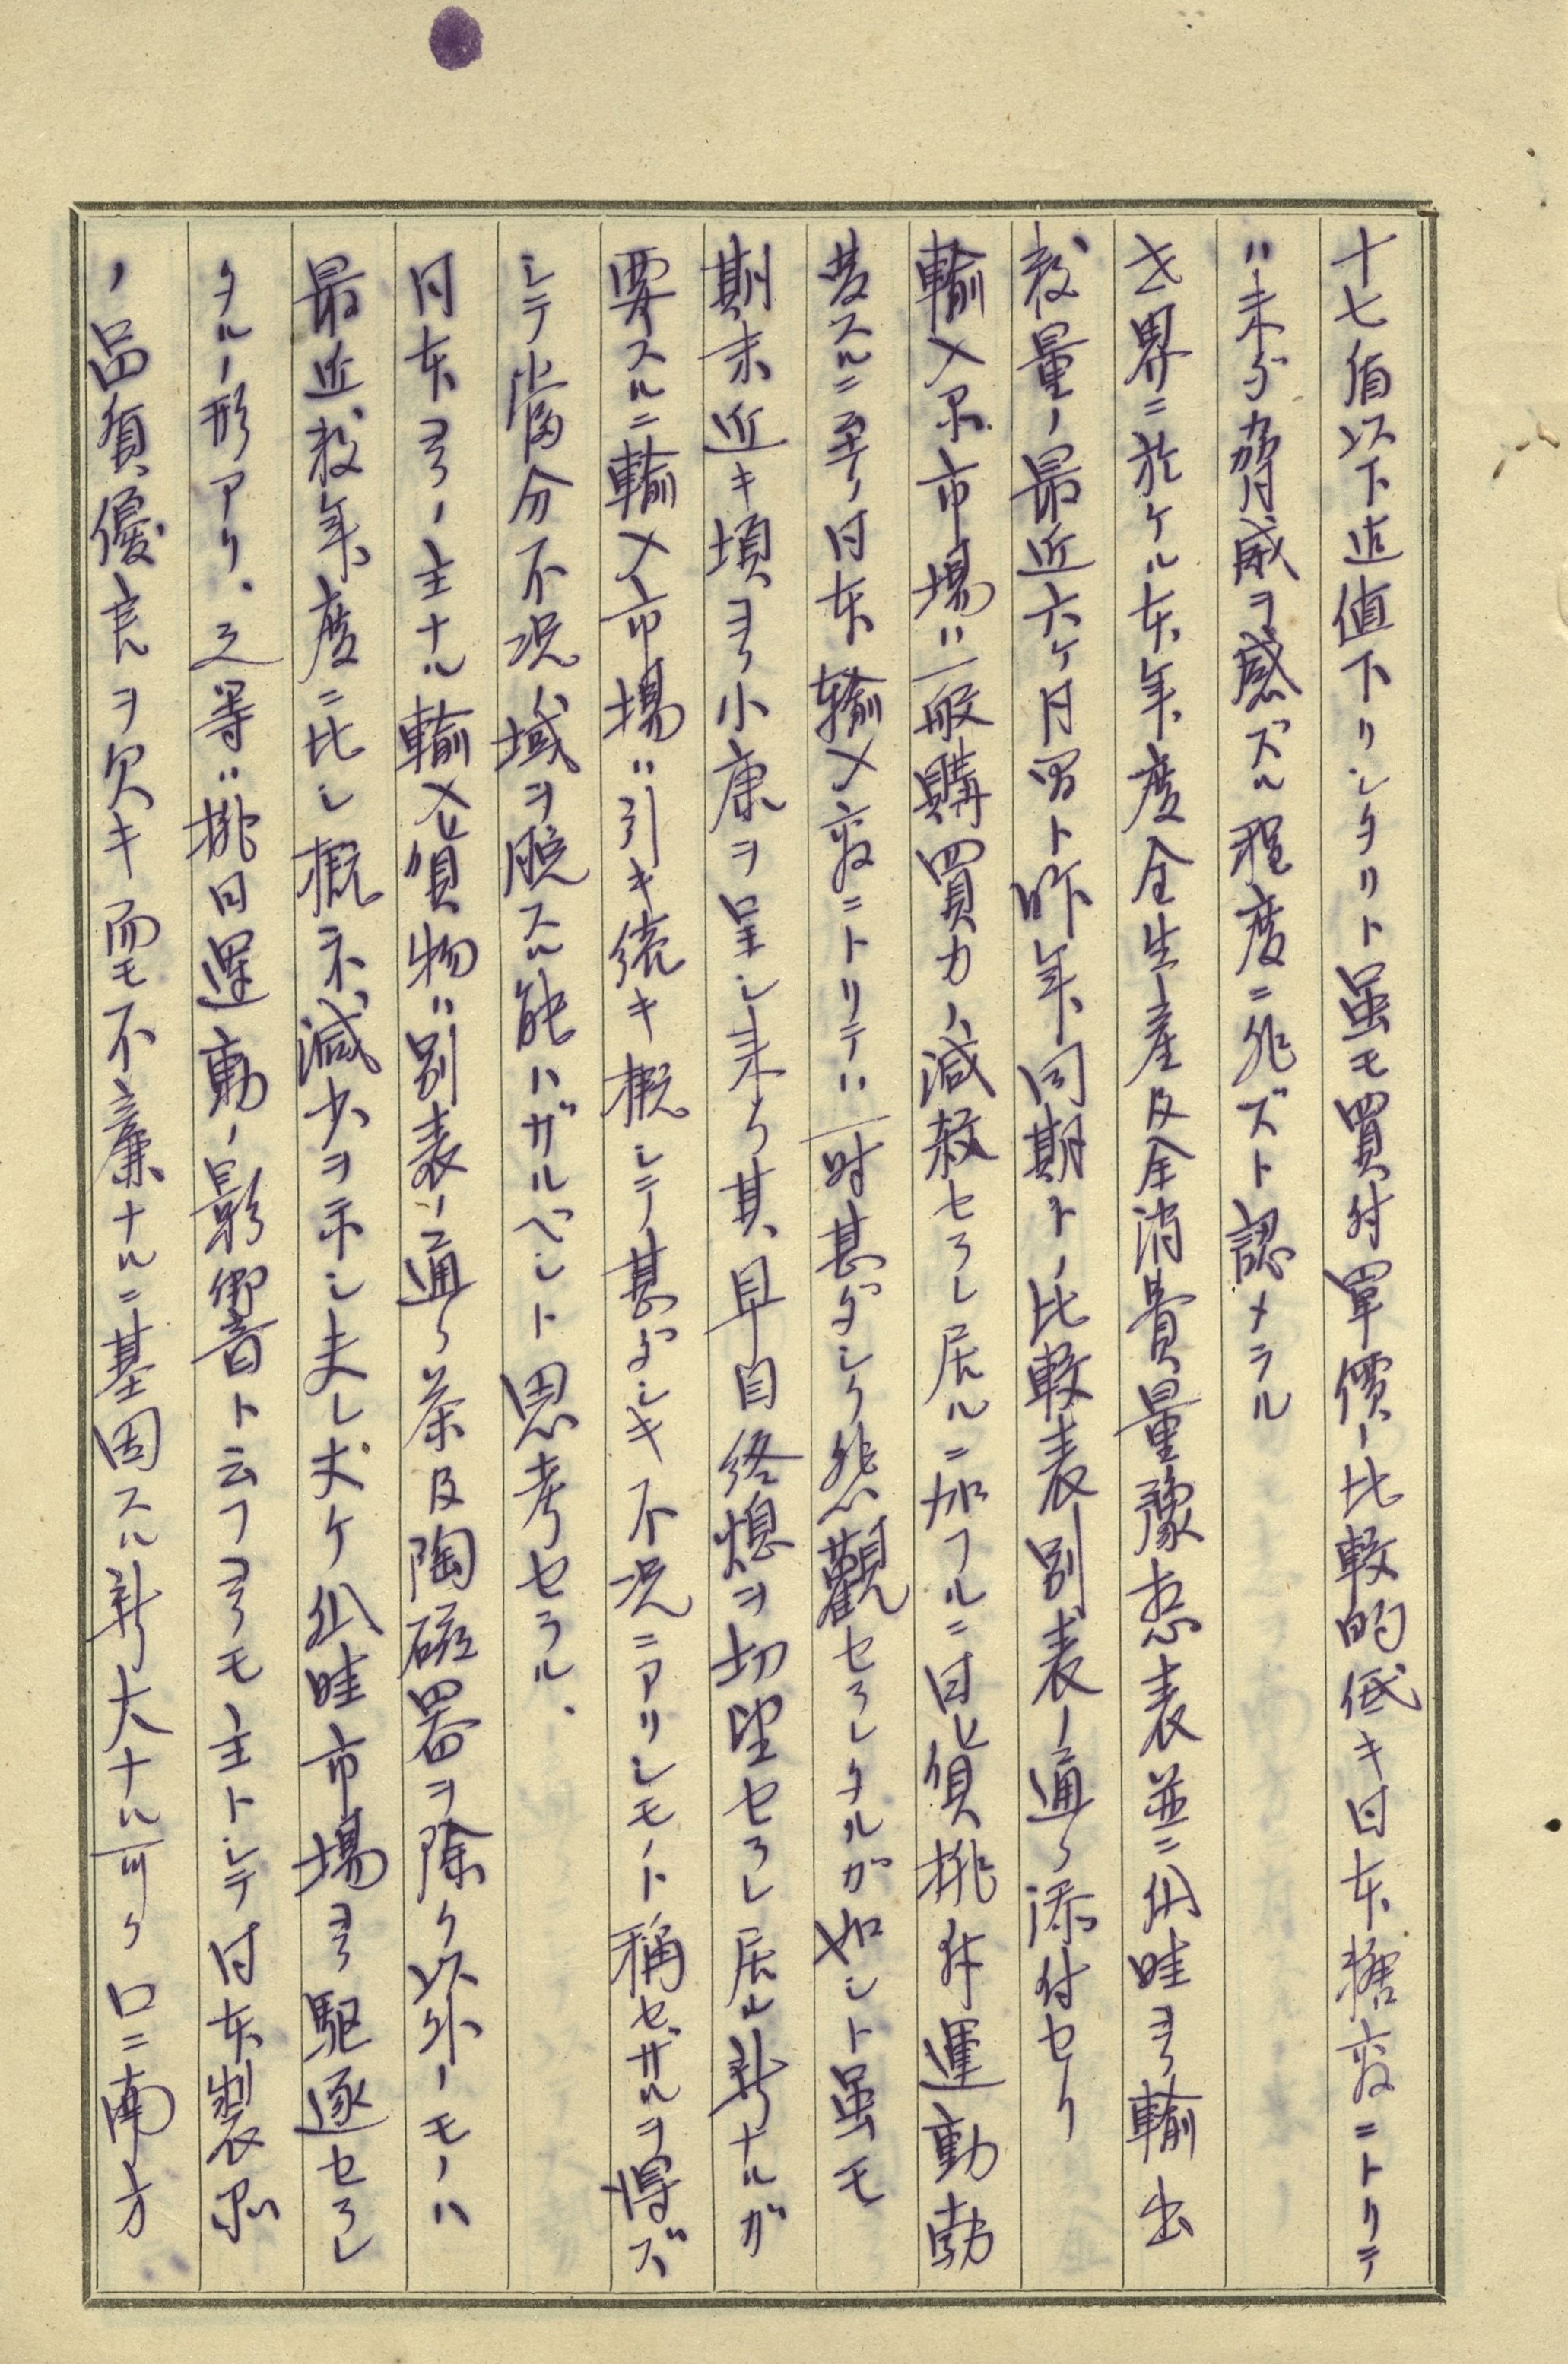 十七盾以下迄値下リシタリト虽モ買付單價ノ比較的低キ日本糖商ニトリテ
ハ未ダ脅威ヲ感ズル程度ニ非ズト認メラル
世界ニ於ケル本年度全生産及全消費量豫想表並ニ爪哇ヨリ輸出
数量ノ最近六ケ月間ト昨年同期トノ比較表別表ノ通リ添付セリ
輸入品市場ハ一般購買力ノ減殺セラレ居ルニ加フルニ日貨排斥運動勃
發スルニ至リ日本輸入商ニトリテハ一時甚ダシク悲觀セラレタルガ如シト虽モ
期末近キ頃ヨリ小康ヲ呈シ来リ其ノ早目終熄ヲ切望セラレ居ル折ナルガ
要スルニ輸入市場ハ引キ續キ概シテ甚ダシキ不況ニアリシモノト稱セザルヲ得ズ
シテ當分不況ノ域ヲ脱スル能ハザルベシト思考セラル、
日本ヨリノ主ナル輸入貨物ハ別表ノ通リ茶及陶磁器ヲ除ク以外ノモノハ
最近数年度ニ比シ概ネ減少ヲ示シ夫レ丈ケ爪哇市場ヨリ駆逐セラレ
タルノ形アリ、之等ハ排日運動ノ影響ト云フヨリモ主トシテ日本製品
ノ品質優良ヲ欠キ而モ不廉ナルニ基因スル新大ナル可ク口ニ南方